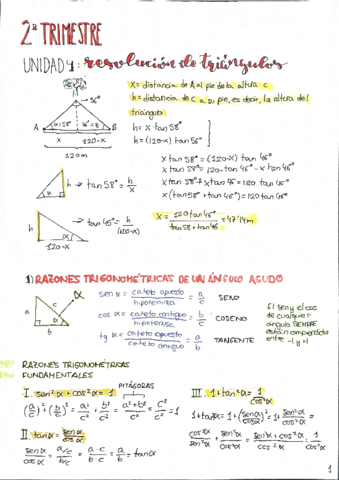 2º TRIMESTRE
UNIDAD 4: resolución de triángulos
x = distancia de A al pie de la altura c
h = distancia de C a su pie, es decir, la altura del
triángulo
56º
α=58º
46º=β
A
B
x
120-x
120m
h = x tan 58º
h = (120-x) tan 46º
x tan 58º = (120-x) tan 46º
x tan 58º = 120·tan 46º - x tan 46º
x tan 58º + x tan 46º = 120 tan 46º
x (tan 58º + tan 46º) = 120 tan 46º
h → tan 58º = h/x
α
x
h
tan 46º = h/(120-x)
α
120-x
x = 120 tan 46º / tan 58 + tan 46 = 47'14m
1) RAZONES TRIGONOMÉTRICAS DE UN ÁNGULO AGUDO
a
c
α
b
sen α = cateto opuesto / hipotenusa = a/c SENO
cos α = cateto contiguo / hipotenusa = b/c COSENO
tg α = cateto opuesto / cateto contiguo = a/b TANGENTE
El sen y el cos
de cualquier
ángulo SIEMPRE
están comprendidos
entre -1 y 1
RAZONES TRIGONOMÉTRICAS
FUNDAMENTALES
PITÁGORAS
I. sen²α + cos²α = 1
(a/c)² + (b/c)² = a²/c² + b²/c² = a²+b²/c² = c²/c² = 1
II. tan α = sen α / cos α
sen α / cos α = a/c / b/c = a·c / b·c = a/b = tan α
III. 1 + tan²α = 1/cos²α
1 + tan²α = 1 + (sen α / cos α)² = 1 + sen²α / cos²α =
cos²α / cos²α + sen²α / cos²α = sen²α + cos²α / cos²α = 1 / cos²α
1